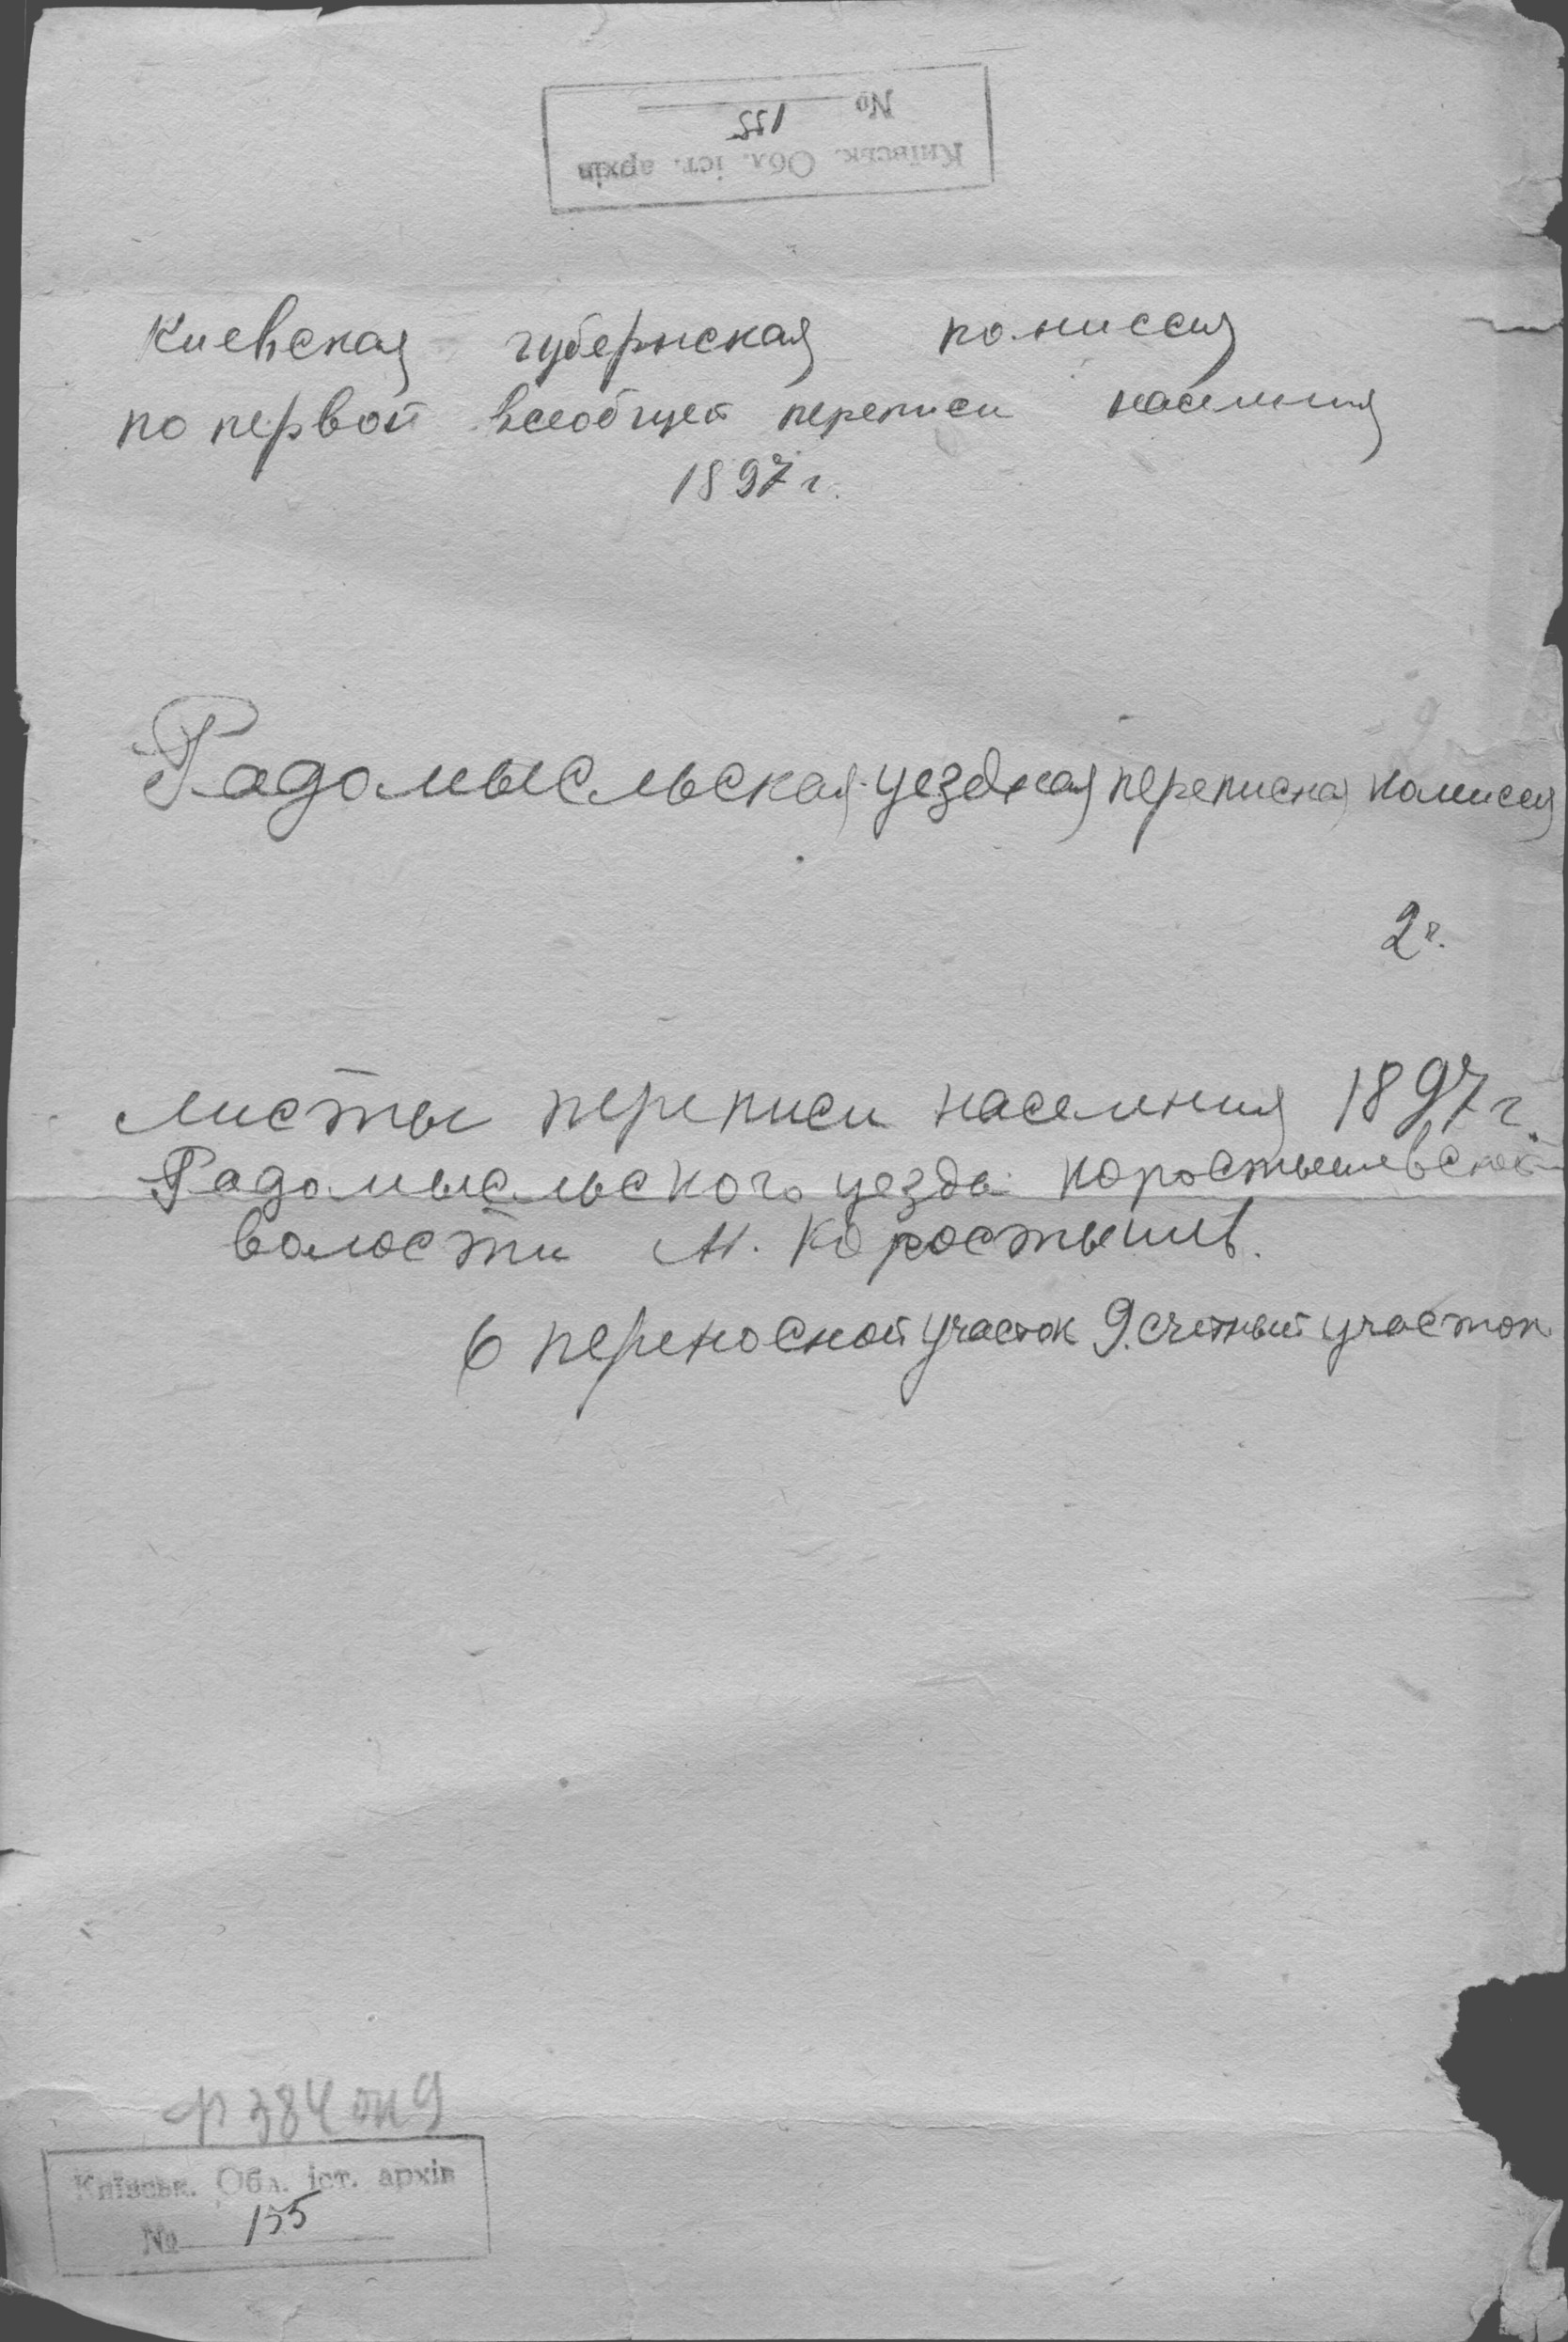 Київськ. Обл. іст. архів
№ 155
Киевская губернская комиссия
по первой всеобщей переписи населения
1897 г.
Радомысльская уездная переписная комиссия
2 г.
Листы переписи населения 1897 г.
Радомысльского уезда Коростышевской
волости м. Коростышев.
6 переносной участок 9. счетный участок
ф 384 оп 9
Київськ. Обл. іст. архів
№ 155